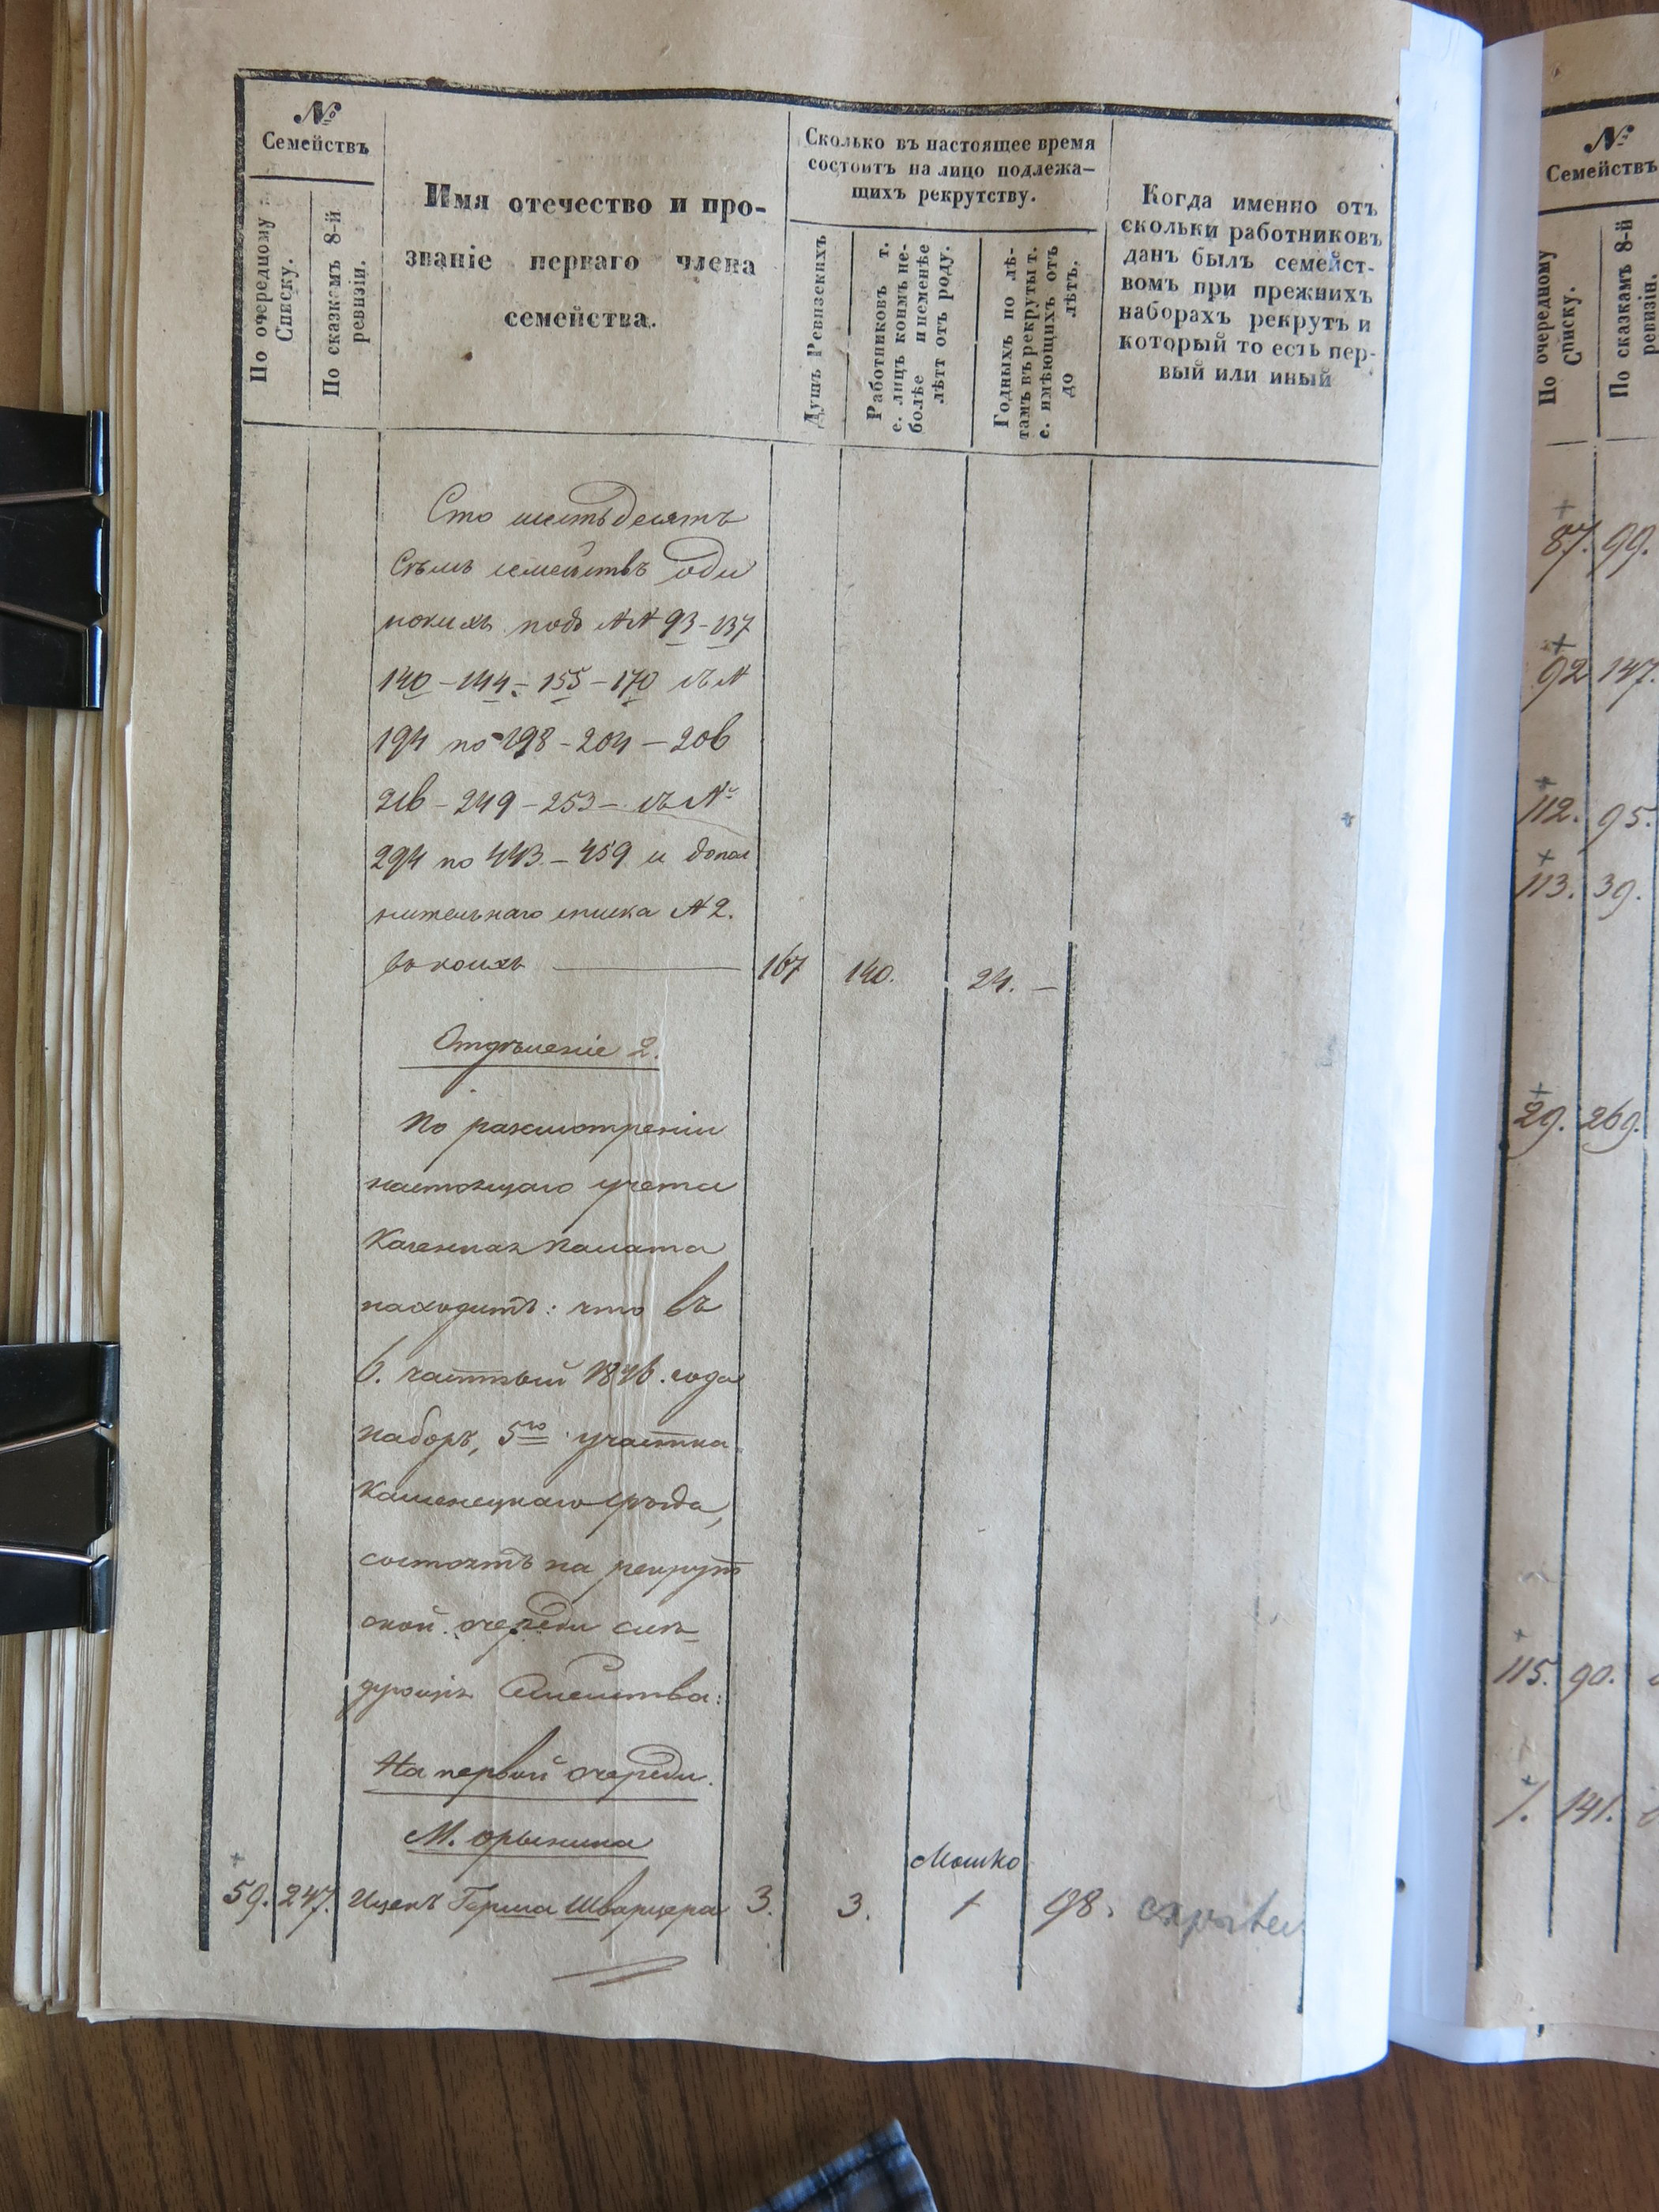 №
Семействъ
По очередному
Списку.
По сказкамъ 8-й
ревизіи.
Имя отечество и про-
званіе перваго члена
семейства.
Сколько въ настоящее время
состоитъ на лицо подлежа-
щихъ рекрутству.
Душъ Ревизскихъ
Работниковъ т.
е. лицъ коимъ не-
болѣе и неменѣе
лѣтт отъ роду.
Годныхъ по лѣ-
тамъ въ рекруты т.
е. имѣющихъ отъ
до лѣтъ.
Когда именно отъ
скольки работниковъ
данъ былъ семейст-
вомъ при прежнихъ
наборахъ рекрутъ и
который то есть пер-
вый или иный
Сто шестьдесятъ
Семь семействъ оди
нокихъ подъ №№ 93-137
140-144-155-170 съ №
194 по 198-204-206
216-249-253- съ №
294 по 443-459 и допол
нительнаго списка №2.
въ коихъ 167 140. 24. —
Отдѣленіе 2.
По разсмотреніи
настоящаго учета
Казенная Палата
находитъ: что въ
6. частный 1846. года
наборъ, 5го участка
Каменецкаго уѣзда,
состоятъ на рекрут
ской очереди слѣ-
дующія Семейства:
На первой очереди.
М. Орынина
Мошко
59. 247. Ицекъ Герша Шварцера 3. 3. 1 98.
№
Семействъ
По очередному
Списку.
По сказкамъ 8-й
ревизіи.
87. 99.
92 147.
112. 95.
113. 39.
29. 269.
115. 90.
7. 141.